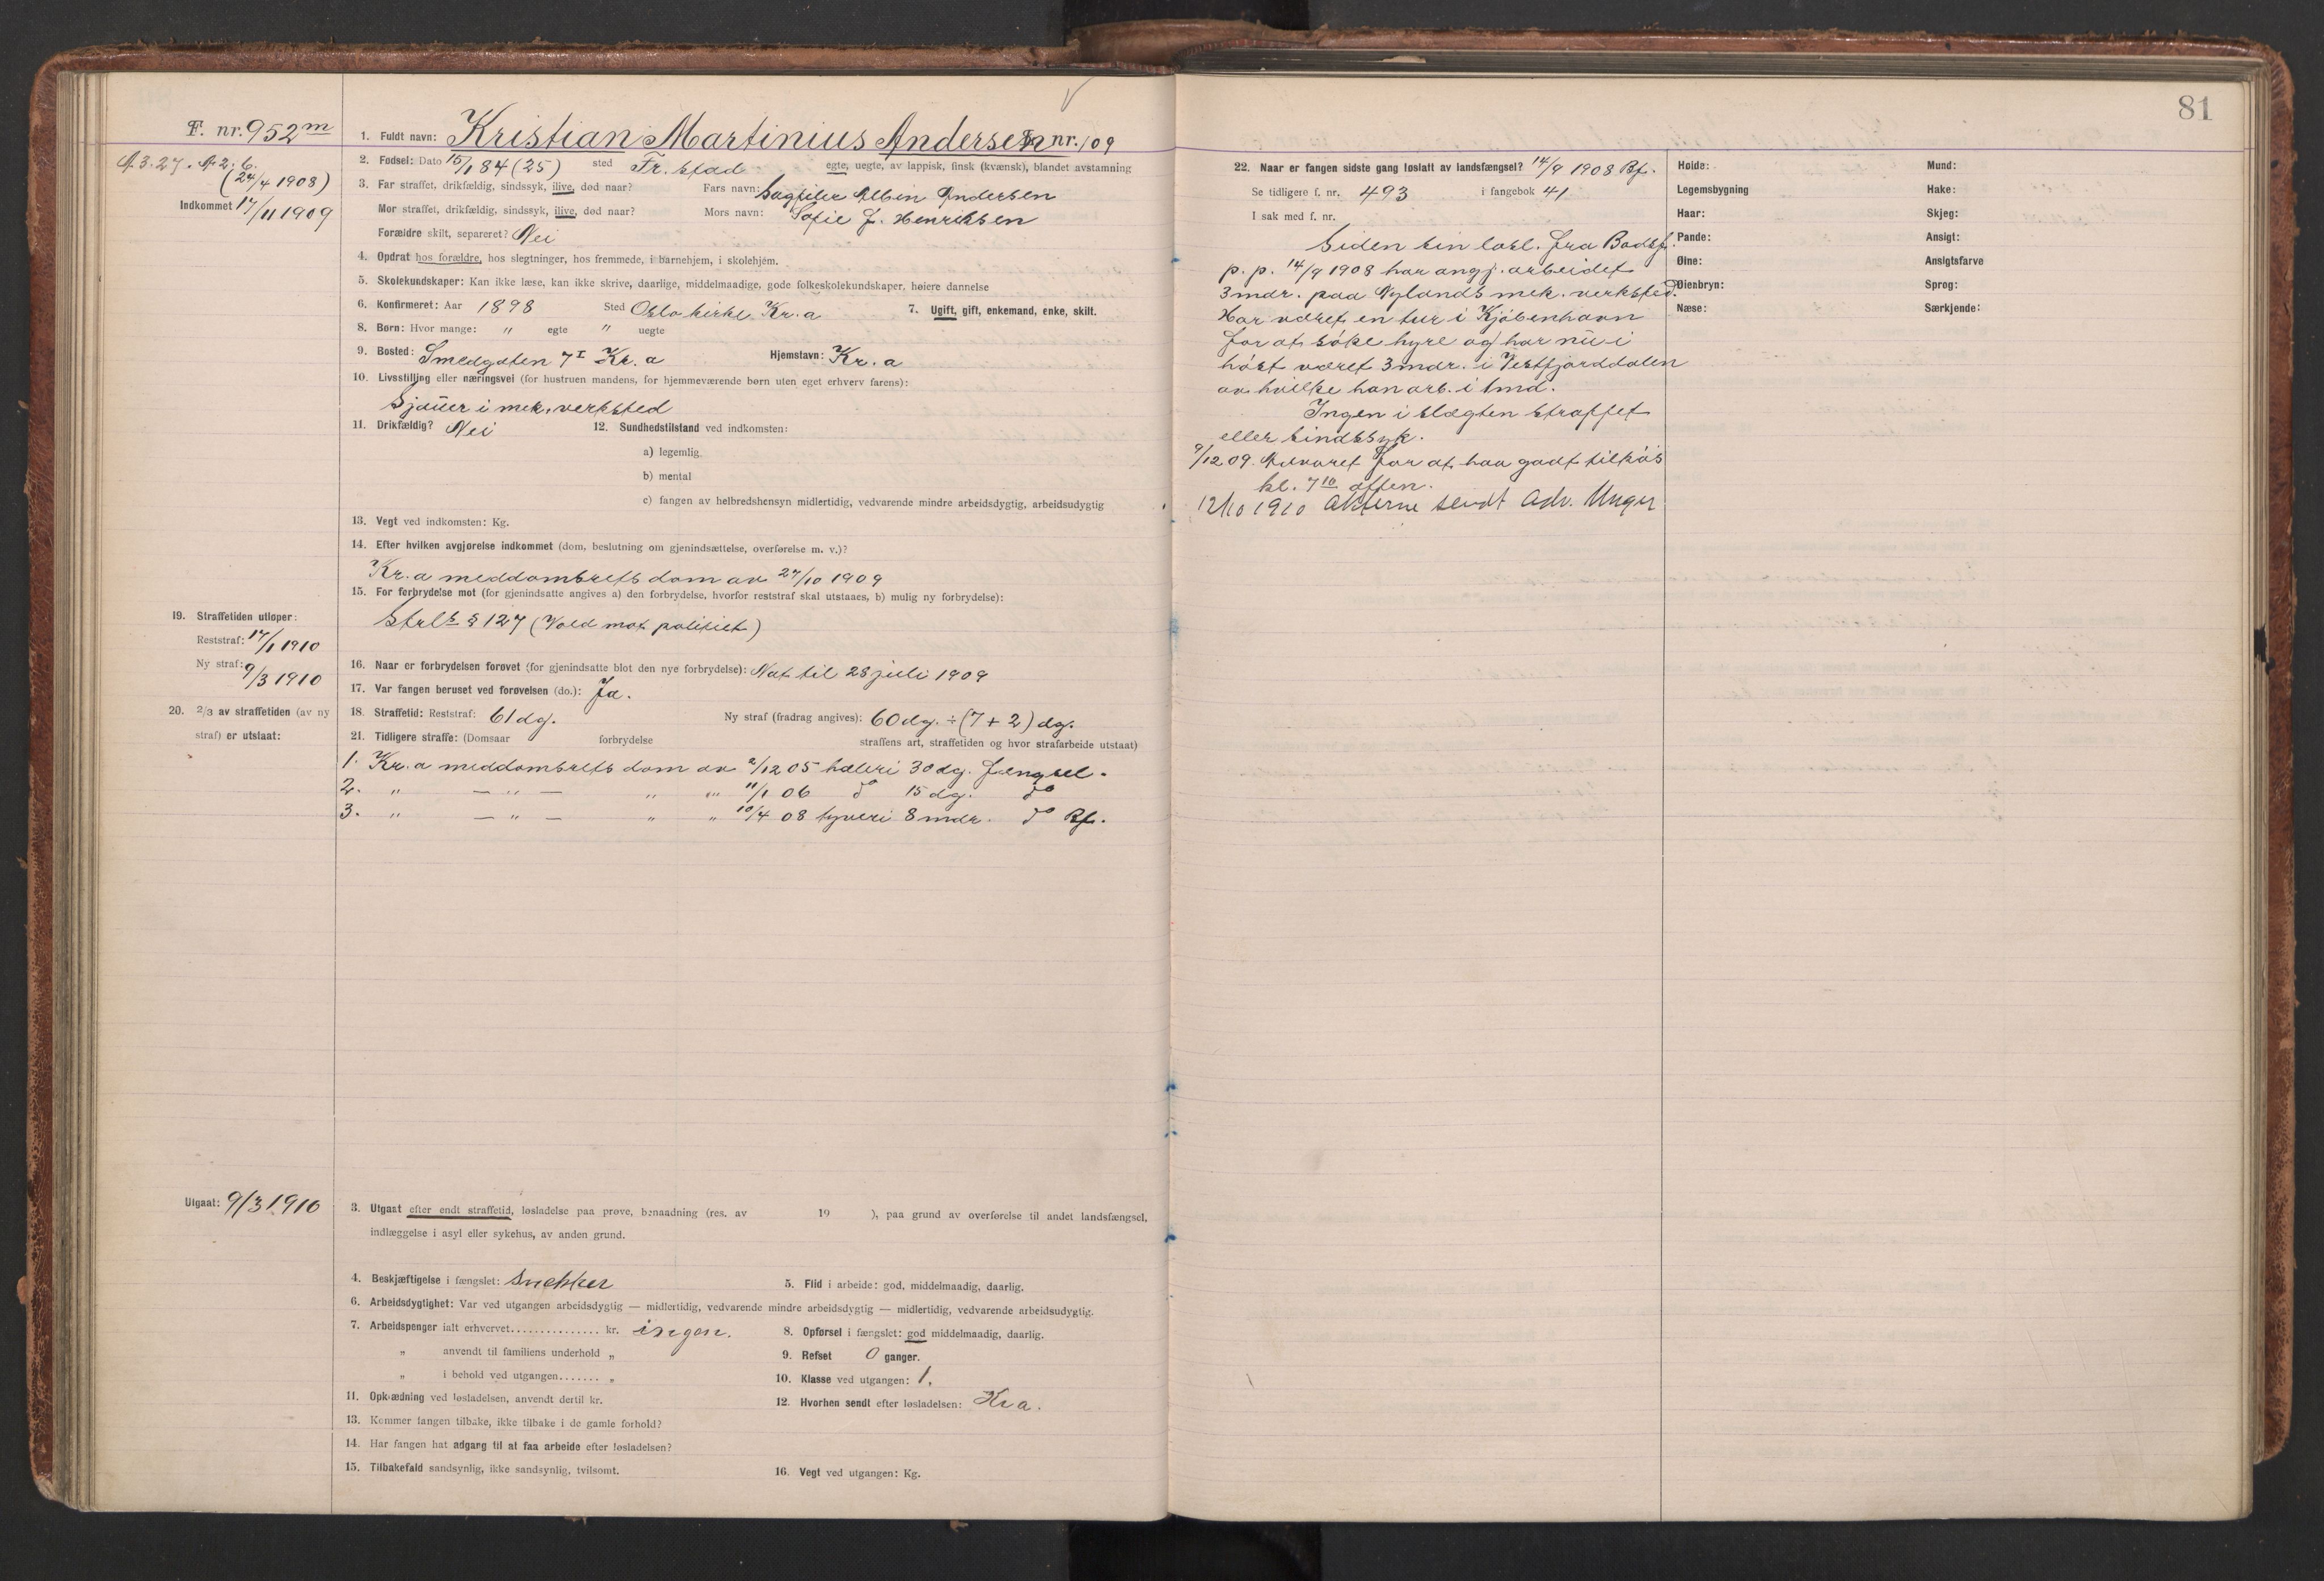 F. nr. 952 m
A. 3. 27. A 2: 6.
(24/4 1908)
Indkommet 17/11 1909
1. Fuldt navn: Kristian Martinius Andersen nr. 109
2. Fødsel: Dato 15/1 84 (25) sted Fr.stad egte, uegte, av lappisk, finsk (kvænsk), blandet avstamning
3. Far straffet, drikfældig, sindssyk, ilive, død naar? Fars navn: Sagfiler Albin Andersen
Mor straffet, drikfældig, sindssyk, ilive, død naar? Mors navn: Sofie J. Henriksen
Forældre skilt, separeret? Nei
4. Opdrat hos forældre, hos slegtninger, hos fremmede, i barnehjem, i skolehjem.
5. Skolekundskaper: Kan ikke læse, kan ikke skrive, daarlige, middelmaadige, gode folkeskolekundskaper, høiere dannelse
6. Konfirmeret: Aar 1898 Sted Oslo kirke Kr.a 7. Ugift, gift, enkemand, enke, skilt.
8. Børn: Hvor mange: " egte " uegte
9. Bosted: Smedgaten 7 I Kr.a Hjemstavn: Kr.a
10. Livsstilling eller næringsvei (for hustruen mandens, for hjemmeværende børn uten eget erhverv farens):
Sjauer i mek. verksted
11. Drikfældig? Nei 12. Sundhedstilstand ved indkomsten:
a) legemlig
b) mental
c) fangen av helbredshensyn midlertidig, vedvarende mindre arbeidsdygtig, arbeidsudygtig
13. Vegt ved indkomsten: Kg.
14. Efter hvilken avgjørelse indkommet (dom, beslutning om gjenindsættelse, overførelse m. v.)?
Kr.a meddomsrets dom av 27/10 1909
15. For forbrydelse mot (for gjenindsatte angives a) den forbrydelse, hvorfor reststraf skal utstaaes, b) mulig ny forbrydelse):
Strl's § 127 (Vold mot politiet)
19. Straffetiden utløper:
Reststraf: 17/1 1910
Ny straf: 9/3 1910
16. Naar er forbrydelsen forøvet (for gjenindsatte blot den nye forbrydelse): Nat til 28 juli 1909
17. Var fangen beruset ved forøvelsen (do.): Ja.
20. 2/3 av straffetiden (av ny
straf) er utstaat:
18. Straffetid: Reststraf: 61 dg. Ny straf (fradrag angives): 60 dg. ÷ (7 + 2) dg.
21. Tidligere straffe: (Domsaar forbrydelse straffens art, straffetiden og hvor strafarbeide utstaat)
1. Kr.a meddomsrets dom av 2/12 05 hæleri 30 dg. fængsel.
2. " — " — " " 11/1 06 do 15 dg. do
3. " — " — " " 10/4 08 tyveri 8 mdr. do Bf.
Utgaat: 9/3 1910
3. Utgaat efter endt straffetid, løsladelse paa prøve, benaadning (res. av 19 ), paa grund av overførelse til andet landsfængsel,
indlæggelse i asyl eller sykehus, av anden grund.
4. Beskjæftigelse i fængslet: Snekker 5. Flid i arbeide: god, middelmaadig, daarlig.
6. Arbeidsdygtighet: Var ved utgangen arbeidsdygtig — midlertidig, vedvarende mindre arbeidsdygtig — midlertidig, vedvarende arbeidsudygtig.
7. Arbeidspenger ialt erhvervet............... kr. ingen. 8. Opførsel i fængslet: god middelmaadig, daarlig.
„ anvendt til familiens underhold „ 9. Refset 0 ganger.
„ i behold ved utgangen....... „ 10. Klasse ved utgangen: 1.
11. Opklædning ved løsladelsen, anvendt dertil kr. 12. Hvorhen sendt efter løsladelsen: Kr a.
13. Kommer fangen tilbake, ikke tilbake i de gamle forhold?
14. Har fangen hat adgang til at faa arbeide efter løsladelsen?
15. Tilbakefald sandsynlig, ikke sandsynlig, tvilsomt. 16. Vegt ved utgangen: Kg.
81
22. Naar er fangen sidste gang løslatt av landsfængsel? 14/9 1908 Bf.
Se tidligere f. nr. 493 i fangebok 41
I sak med f. nr.
Siden sin løsl. fra Bodsf.
p. p. 14/9 1908 har angj. arbeidet
3 mdr. paa Nylands mek. verksted.
Har været en tur i Kjøbenhavn
for at søke hyre og har nu i
høst været 3 mdr. i Vestfjorddalen
av hvilke han arb. i 1 md.
Ingen i slægten straffet
eller sindssyk.
9/12 09. Advaret for at haa gaat tilkøis
kl. 7 10 aften.
12/10 1910 Akterne sendt Adv. Unger
Høide: Mund:
Legemsbygning Hake:
Haar: Skjeg:
Pande: Ansigt:
Øine: Ansigtsfarve
Øienbryn: Sprog:
Næse: Særkjende: